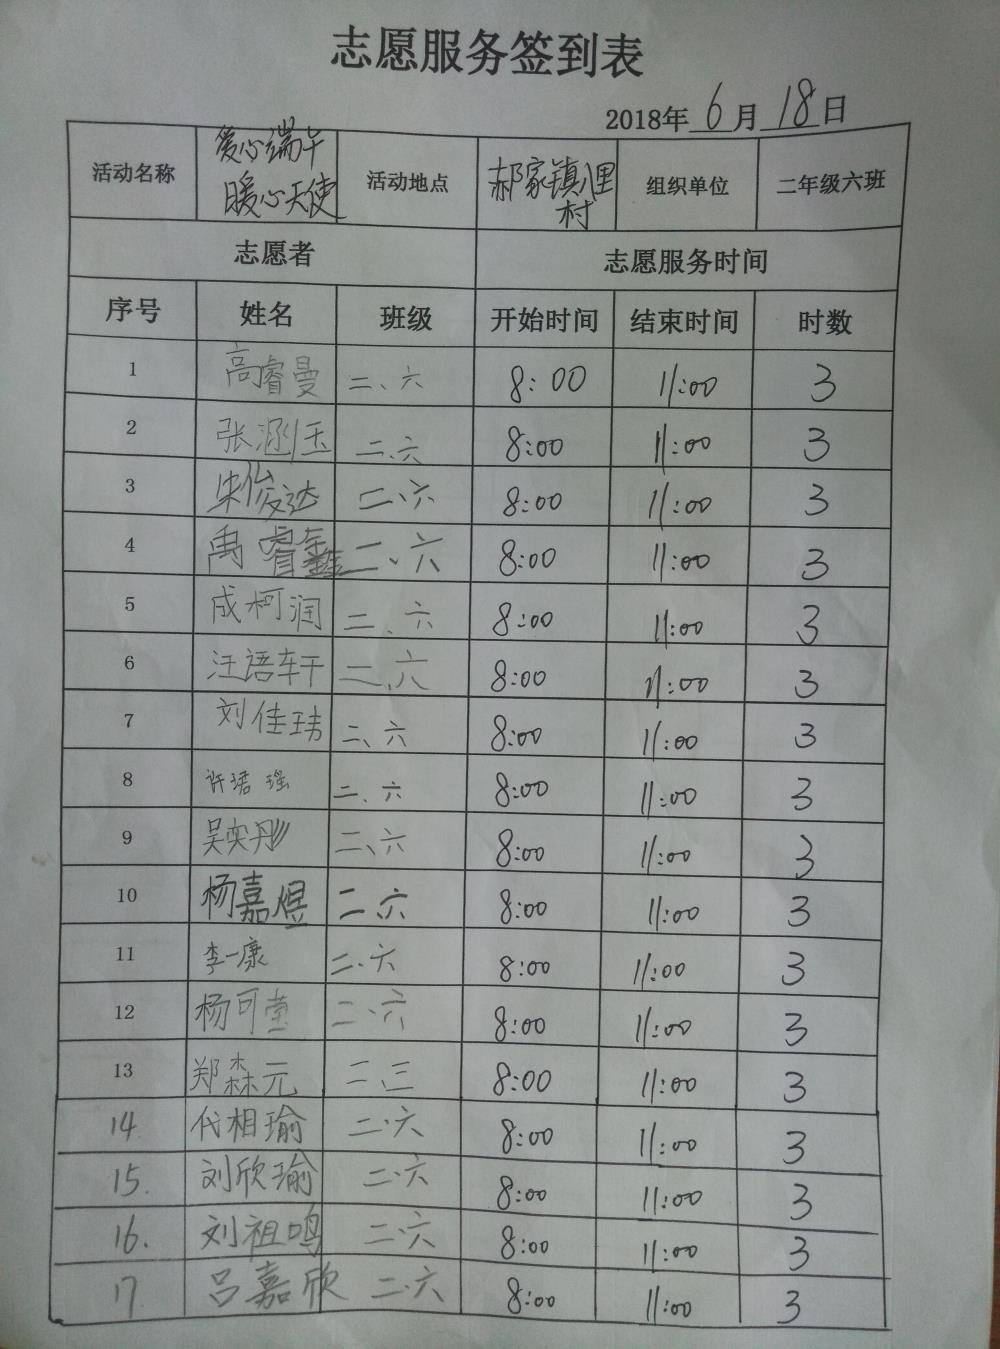 志愿服务签到表
2018年 6 月 18 日
活动名称 爱心端午 暖心天使 活动地点 郝家镇八里村 组织单位 二年级六班
志愿者 志愿服务时间
序号 姓名 班级 开始时间 结束时间 时数
1 高睿曼 二、六 8:00 11:00 3
2 张涵玉 二、六 8:00 11:00 3
3 宋俊达 二·六 8:00 11:00 3
4 禹睿鑫 二、六 8:00 11:00 3
5 成柯润 二、六 8:00 11:00 3
6 汪语轩 二、六 8:00 11:00 3
7 刘佳玮 二、六 8:00 11:00 3
8 许珺瑶 二、六 8:00 11:00 3
9 吴奕彤 二、六 8:00 11:00 3
10 杨嘉煜 二·六 8:00 11:00 3
11 李一康 二·六 8:00 11:00 3
12 杨可莹 二·六 8:00 11:00 3
13 郑森元 二·三 8:00 11:00 3
14 代相瑜 二·六 8:00 11:00 3
15. 刘欣瑜 二·六 8:00 11:00 3
16. 刘祖鸣 二·六 8:00 11:00 3
17 吕嘉欣 二·六 8:00 11:00 3